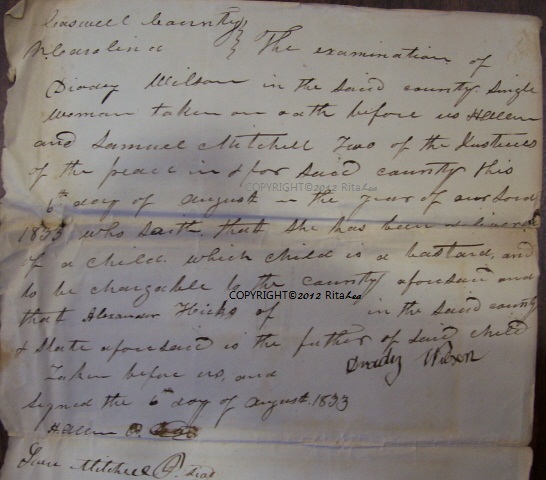 Caswell County
N. Carolina } The examination of
Wilson in the said county Single
woman taken on oath before us
and Samuel Mitchell Two of the Justices
of the peace in & for said county this
COPYRIGHT©2012 RitaLea
6th day of august in the year of our Lord
1833 who saith that she has been deliver'd
of a child which child is a bastard, and
to be chargable to the county aforesaid and
COPYRIGHT©2012 RitaLea
that Alexander Hicks of in the said county
& State aforesaid is the father of said child
Taken before us, and Wilson
Signed the 6th day of august 1833
Mitchell